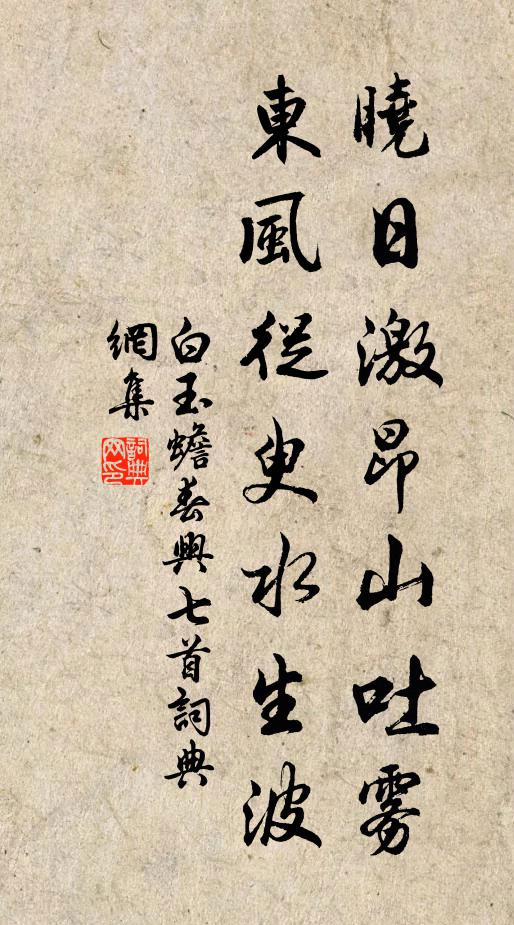 曉日激昂山吐雾
東風從叟水生波
白玉蟾春興七首詞典
網集
詞典
网印